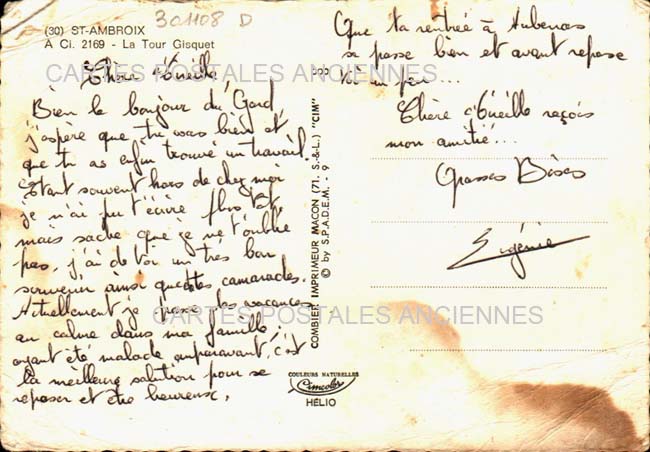 301108 D
(30) ST-AMBROIX
A Ci. 2169 - La Tour Gisquet
CARTES POSTALES ANCIENNES
Chère Mireille
Bien le bonjour du Gard,
j'aspère que tu vas bien et
que tu as enfin trouvé un travail.
Etant souvent hors de chez moi
je n'ai pu t'écrire plus tôt,
mais sache que je ne t'oublie
pas, j'ai de toi un très bon
souvenir ainsi que des camarades.
Actuellement je passe des vacances
au calme dans ma famille,
ayant été malade auparavant, c'est
la meilleure solution pour se
reposer et être heureux,
COMBIER IMPRIMEUR MACON (71. S.-&-L.) "CIM"
© by S.P.A.D.E.M. - 9
Que ta rentrée à Aubenas
se passe bien et avant repose
toi un peu...
Chère Mireille reçois
mon amitié...
Grosses Bises
Eugénie
CARTES POSTALES ANCIENNES
COULEURS NATURELLES
Cimcolor
HÉLIO